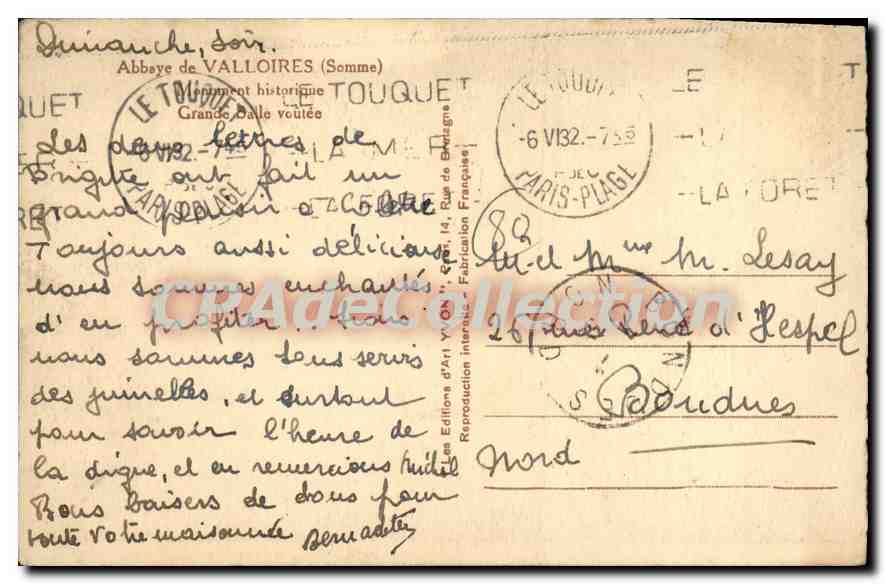 Dimanche, soir.
Abbaye de VALLOIRES (Somme)
Monument historique
Grande Salle voutée
LE TOUQUET
-6 VI 32.-7
PARIS-PLAGE
LE TOUQUET
-LA MER
-LA FORET
LE TOUQUET
-6 VI 32.-7
PARIS-PLAGE
LE
-LA
-LA FORET
Les deux lettres de
Brigitte ont fait un
grand plaisir a Colette
Toujours aussi délicieuse
nous sommes enchantés
d'en profiter..
nous sommes tous servis
des jumelles, et surtout
pour savoir l'heure de
la digue, et en remercions Michel
Bons baisers de tous pour
toute votre maisonnée Bernadette
Les Editions d'Art YVON, Paris, 14, Rue de Bretagne
Reproduction interdite - Fabrication Française
82
M. et Mme M. Lesay
26 d'Hespel
Nord
CPAdeCollection